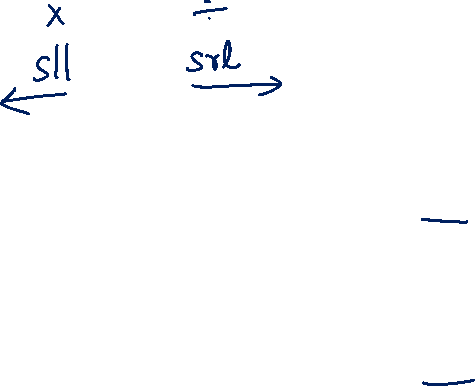 × ÷
sll srl